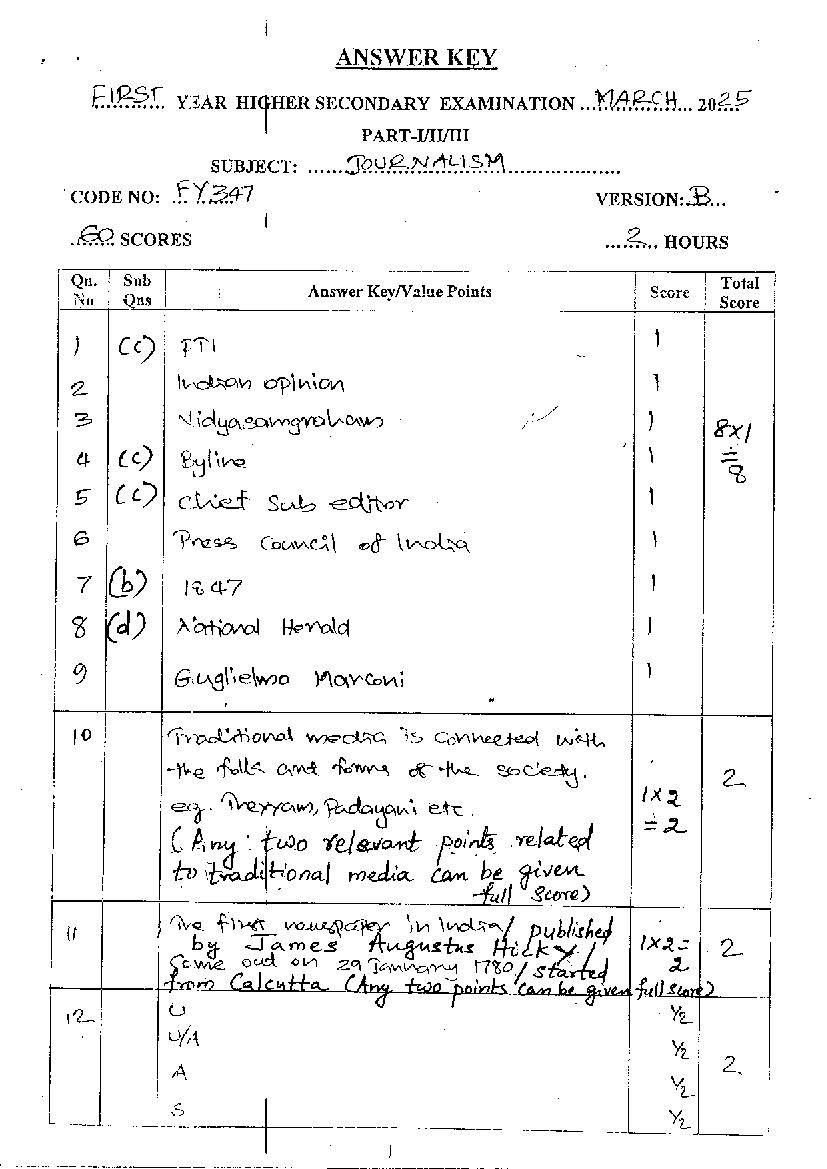 ANSWER KEY
FIRST YEAR HIGHER SECONDARY EXAMINATION MARCH 2025
PART-I/II/III
SUBJECT: JOURNALISM
CODE NO: FY347 VERSION: B
60 SCORES 2 HOURS
Qn. No Sub Qns Answer Key/Value Points Score Total Score
1 (c) FTI 1
2 Indian opinion 1
3 Vidyasamgraham 1
4 (c) Byline 1
5 (c) Chief Sub editor 1
6 Press Council of India 1
7 (b) 1847 1
8 (d) National Herald 1
9 Guglielmo Marconi 1
8x1 = 8
10 Traditional media is connected with
the folk and forms of the society.
eg. Theyyam, Padayani etc.
(Any two relevant points related
to traditional media can be given
full Score)
1x2 = 2
2
11 The first newspaper in India/ published
by James Augustus Hicky/
Came out on 29 January 1780/ started
from Calcutta (Any two points can be given full score)
1x2 = 2
2
12 U ½
U/A ½
A ½
S ½
2
1